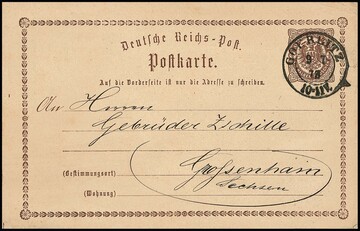 Deutsche Reichs-Post.
Postkarte.
Auf die Vorderseite ist nur die Adresse zu schreiben.
GOERLITZ
9 7
10-11V.
An Herren
Gebrüder Zschille
Grossenhain
(Bestimmungsort)
Sachsen
(Wohnung)